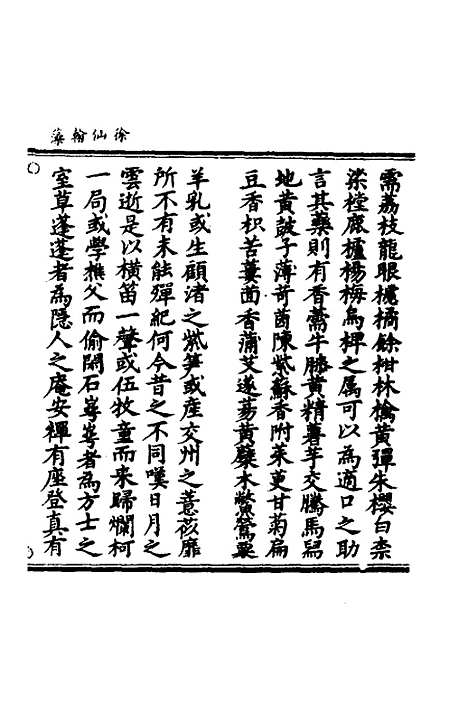 徐仙翰藻
需荔枝龍眼橄橘餘柑林檎黃彈朱櫻白柰
柒樘鹿櫨楊梅烏椑之属可以為適口之助
言其藥則有香薷牛膝黃精薯芋交騰馬舄
地黃皷子薄苛茵陳紫蘇香附茱萸甘菊扁
豆香枳苦蔞茴香蒲艾遂蒻黃蘗木鱉鶯粟
羊乳或生顧渚之紫笋或產交州之薏苡靡
所不有未能殫紀何今昔之不同嘆日月之
雲逝是以橫笛一聲或伍牧童而来歸爛柯
一局或學樵父而偷閑石崒崒者為方士之
室草蓬蓬者為隠人之庵安禪有座登真有